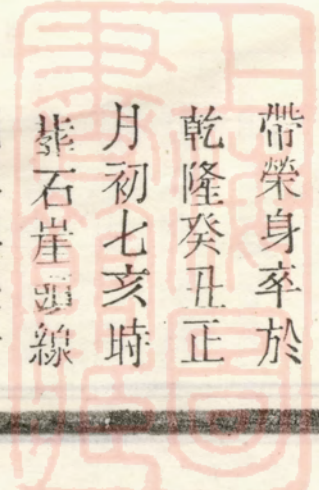 帶榮身卒於
乾隆癸丑正
月初七亥時
葬石崖頭線